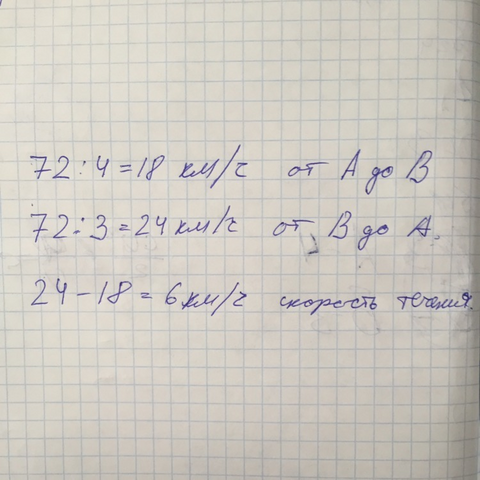 72:4=18 км/ч от А до В
72:3=24 км/ч от В до А.
24-18=6 км/ч скорость течения.